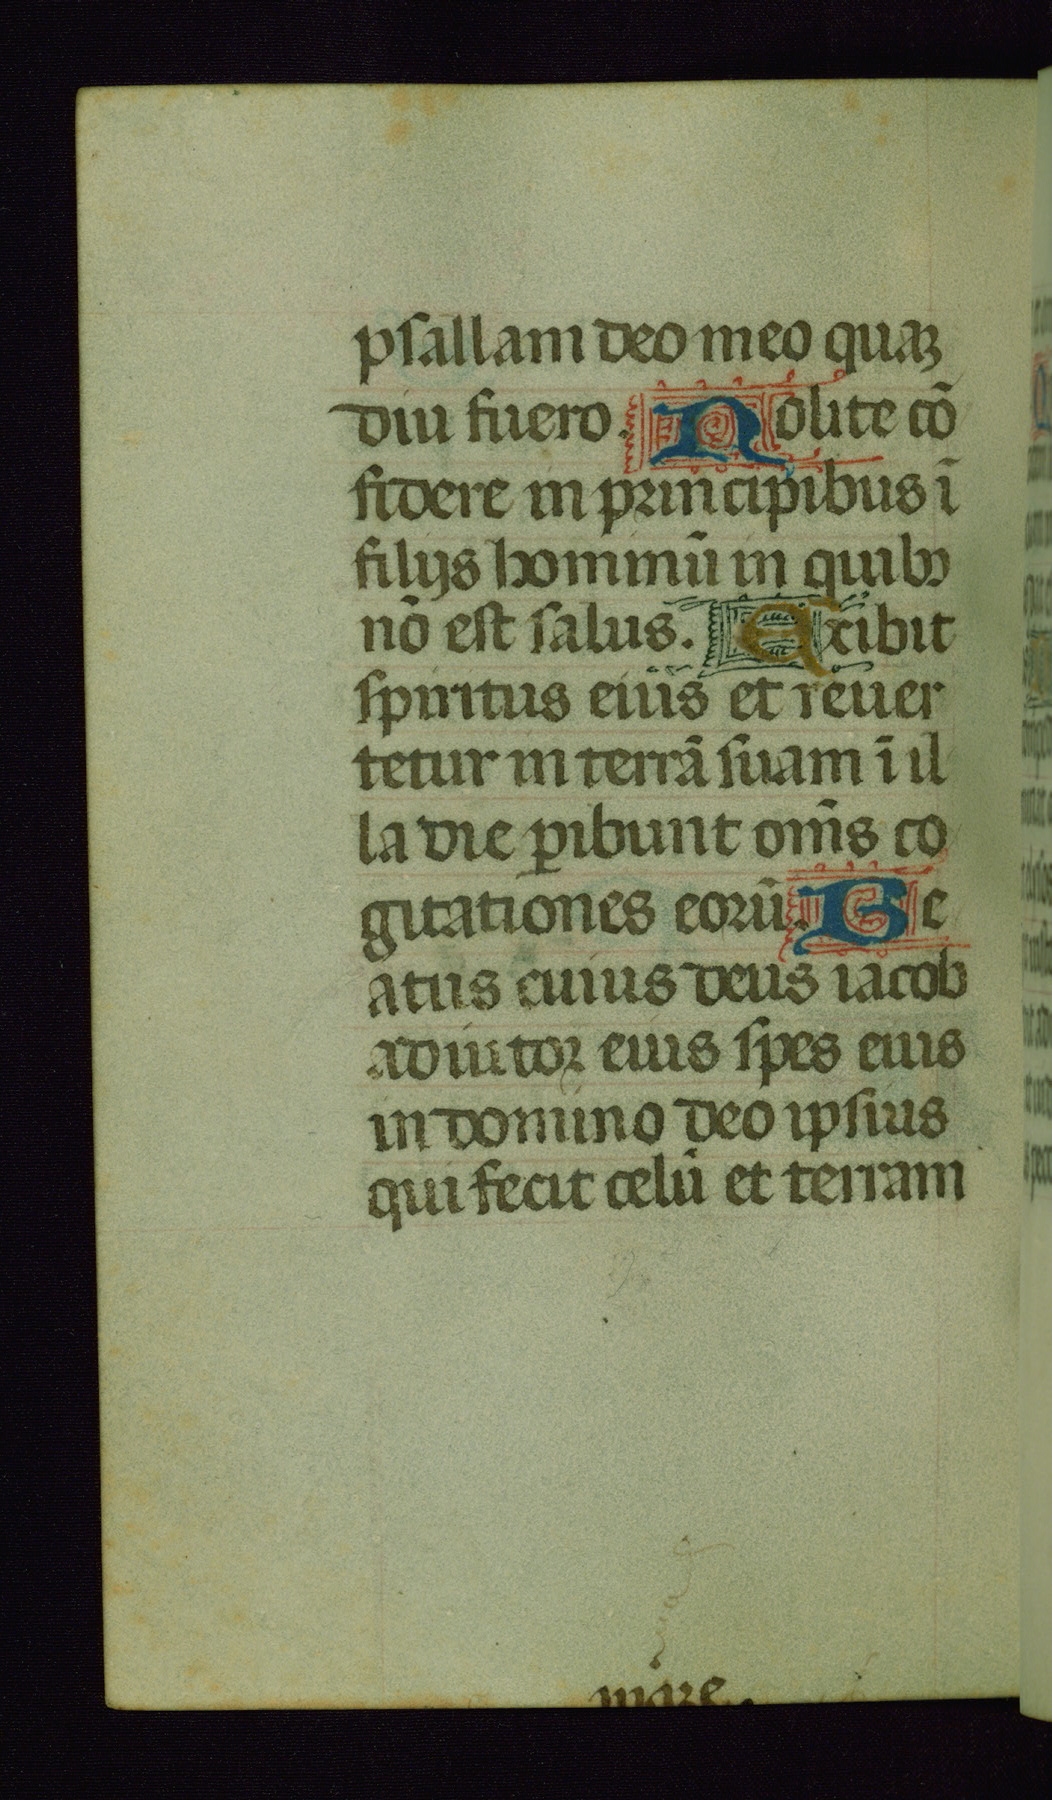 psallam deo meo quaꝫ
diu fuero. Nolite cō
fidere in principibus ī
filijs hominū in quibꝫ
nō est salus. Exibit
spiritus eius et reuer
tetur in terrā suam ī il
la die ꝑibunt om̄s co
gitationes eorū. Be
atus cuius deus iacob
adiutor eius spes eius
in domino deo ipsius
qui fecit celū et terram
mare.